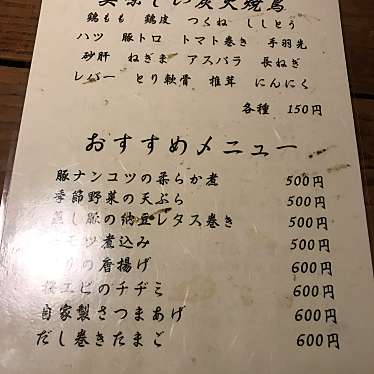 炭火焼鳥
鶏もも 鶏皮 つくね ししとう
ハツ 豚トロ トマト巻き 手羽先
砂肝 ねぎま アスパラ 長ねぎ
レバー とり軟骨 椎茸 にんにく
各種 150円
おすすめメニュー
豚ナンコツの柔らか煮 500円
季節野菜の天ぷら 500円
蒸し豚の納豆レタス巻き 500円
モツ煮込み 500円
の唐揚げ 600円
桜エビのチヂミ 600円
自家製さつまあげ 600円
だし巻きたまご 600円